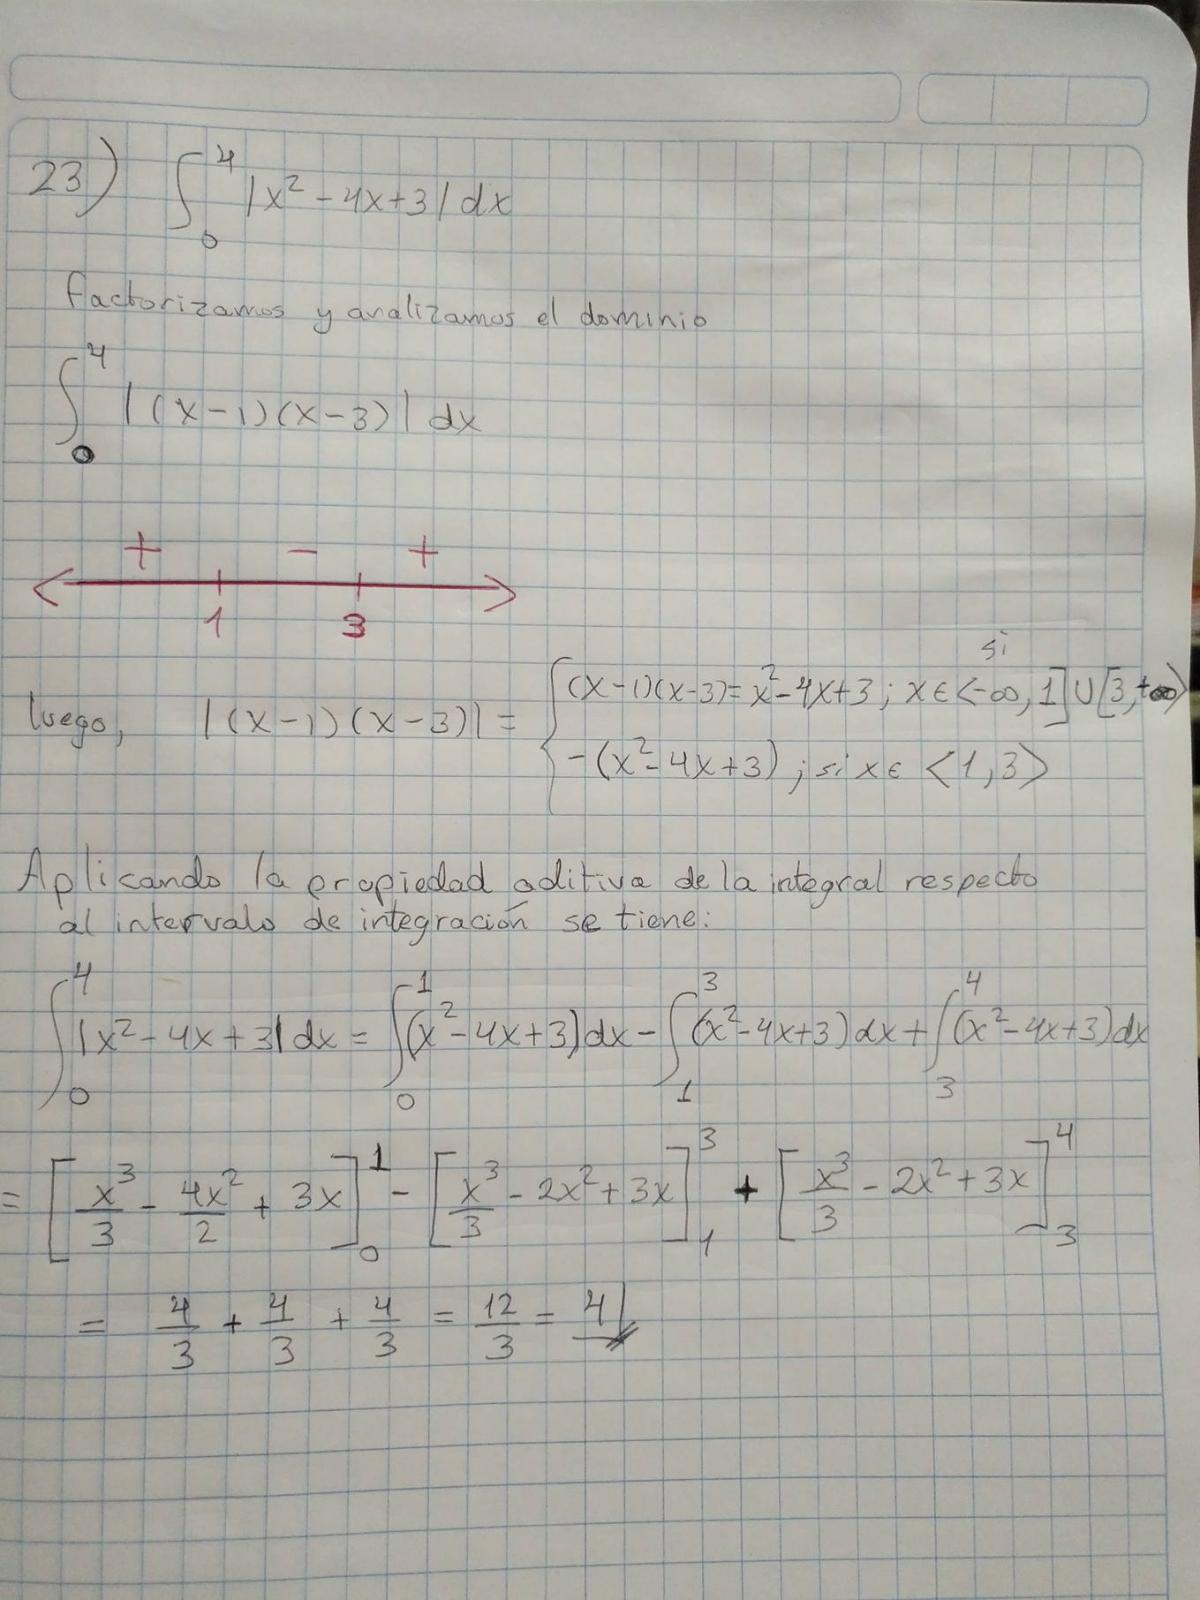 23) ∫₀⁴ |x² - 4x + 3| dx
factorizamos y analizamos el dominio
∫₀⁴ |(x-1)(x-3)| dx
+ - +
1 3
luego, |(x-1)(x-3)| = { (x-1)(x-3) = x² - 4x + 3 ; si x ∈ <-∞, 1] ∪ [3, +∞>
-(x² - 4x + 3) ; si x ∈ <1, 3>
Aplicando la propiedad aditiva de la integral respecto
al intervalo de integración se tiene:
∫₀⁴ |x² - 4x + 3| dx = ∫₀¹ (x² - 4x + 3) dx - ∫₁³ (x² - 4x + 3) dx + ∫₃⁴ (x² - 4x + 3) dx
= [x³/3 - 4x²/2 + 3x]₀¹ - [x³/3 - 2x² + 3x]₁³ + [x³/3 - 2x² + 3x]₃⁴
= 4/3 + 4/3 + 4/3 = 12/3 = 4